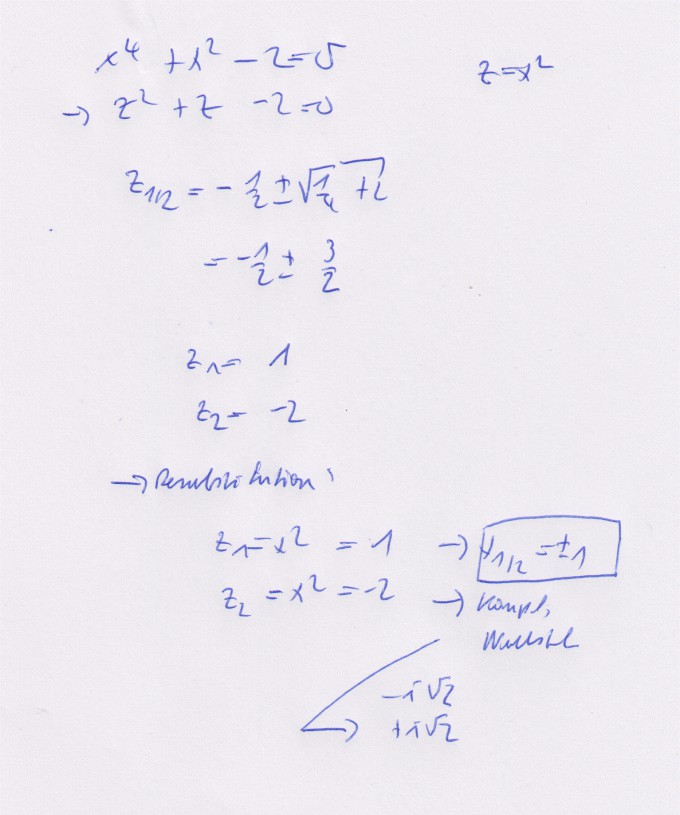 x⁴ + x² - 2 = 0 z = x²
→ z² + z - 2 = 0
z₁/₂ = - 1/2 ± √(1/4 + 2)
= - 1/2 ± 3/2
z₁ = 1
z₂ = -2
→ Resubstitution:
z₁ = x² = 1 → x₁/₂ = ±1
z₂ = x² = -2 → Kompl.
-i√2
+i√2